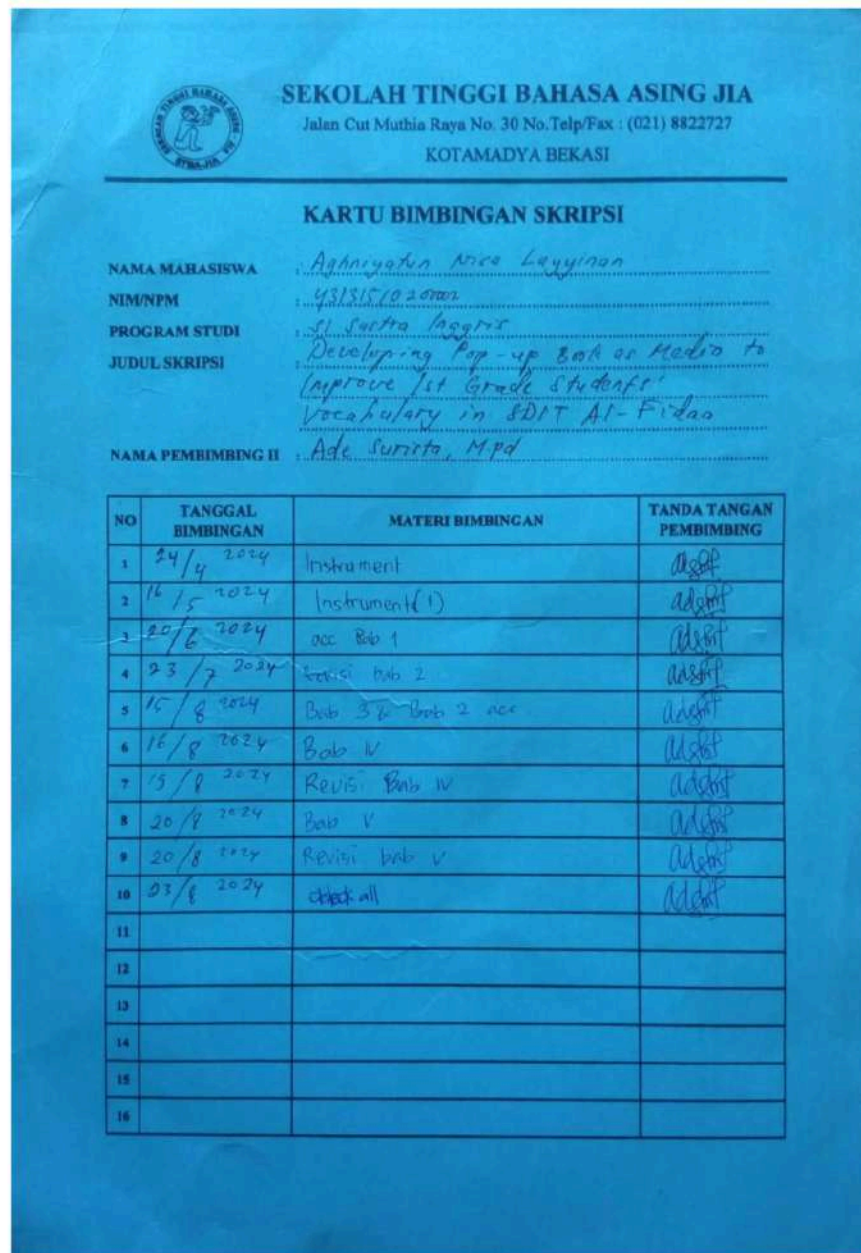 SEKOLAH TINGGI BAHASA ASING JIA
Jalan Cut Muthia Raya No. 30 No.Telp/Fax : (021) 8822727
KOTAMADYA BEKASI
KARTU BIMBINGAN SKRIPSI
NAMA MAHASISWA : Aghniyatun Nisa Layyinan
NIM/NPM :
PROGRAM STUDI : S1 Sastra Inggris
JUDUL SKRIPSI : Developing Pop-up Book as Media to
Improve 1st Grade Students'
Vocabulary in SDIT Al-Fidaa
NAMA PEMBIMBING II : Ade Surista, M.pd
NO TANGGAL BIMBINGAN MATERI BIMBINGAN TANDA TANGAN PEMBIMBING
1 24/4 2024 Instrument
2 16/5 2024 Instrument (1)
3 20/6 2024 acc Bab 1
4 23/7 2024 revisi bab 2
5 15/8 2024 Bab 3 & Bab 2 acc
6 16/8 2024 Bab IV
7 19/8 2024 Revisi Bab IV
8 20/8 2024 Bab V
9 20/8 2024 Revisi bab V
10 23/8 2024 check all
11
12
13
14
15
16